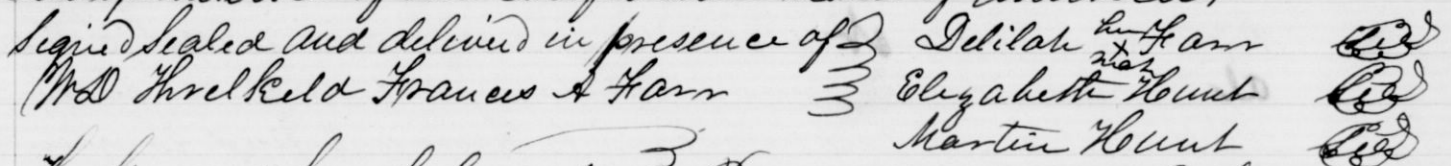 Signed Sealed and delivered in presence of Delilah her x mark Farr Seal
W D Threlkeld Frances A Farr Elizabeth Hunt Seal
Martin Hunt Seal